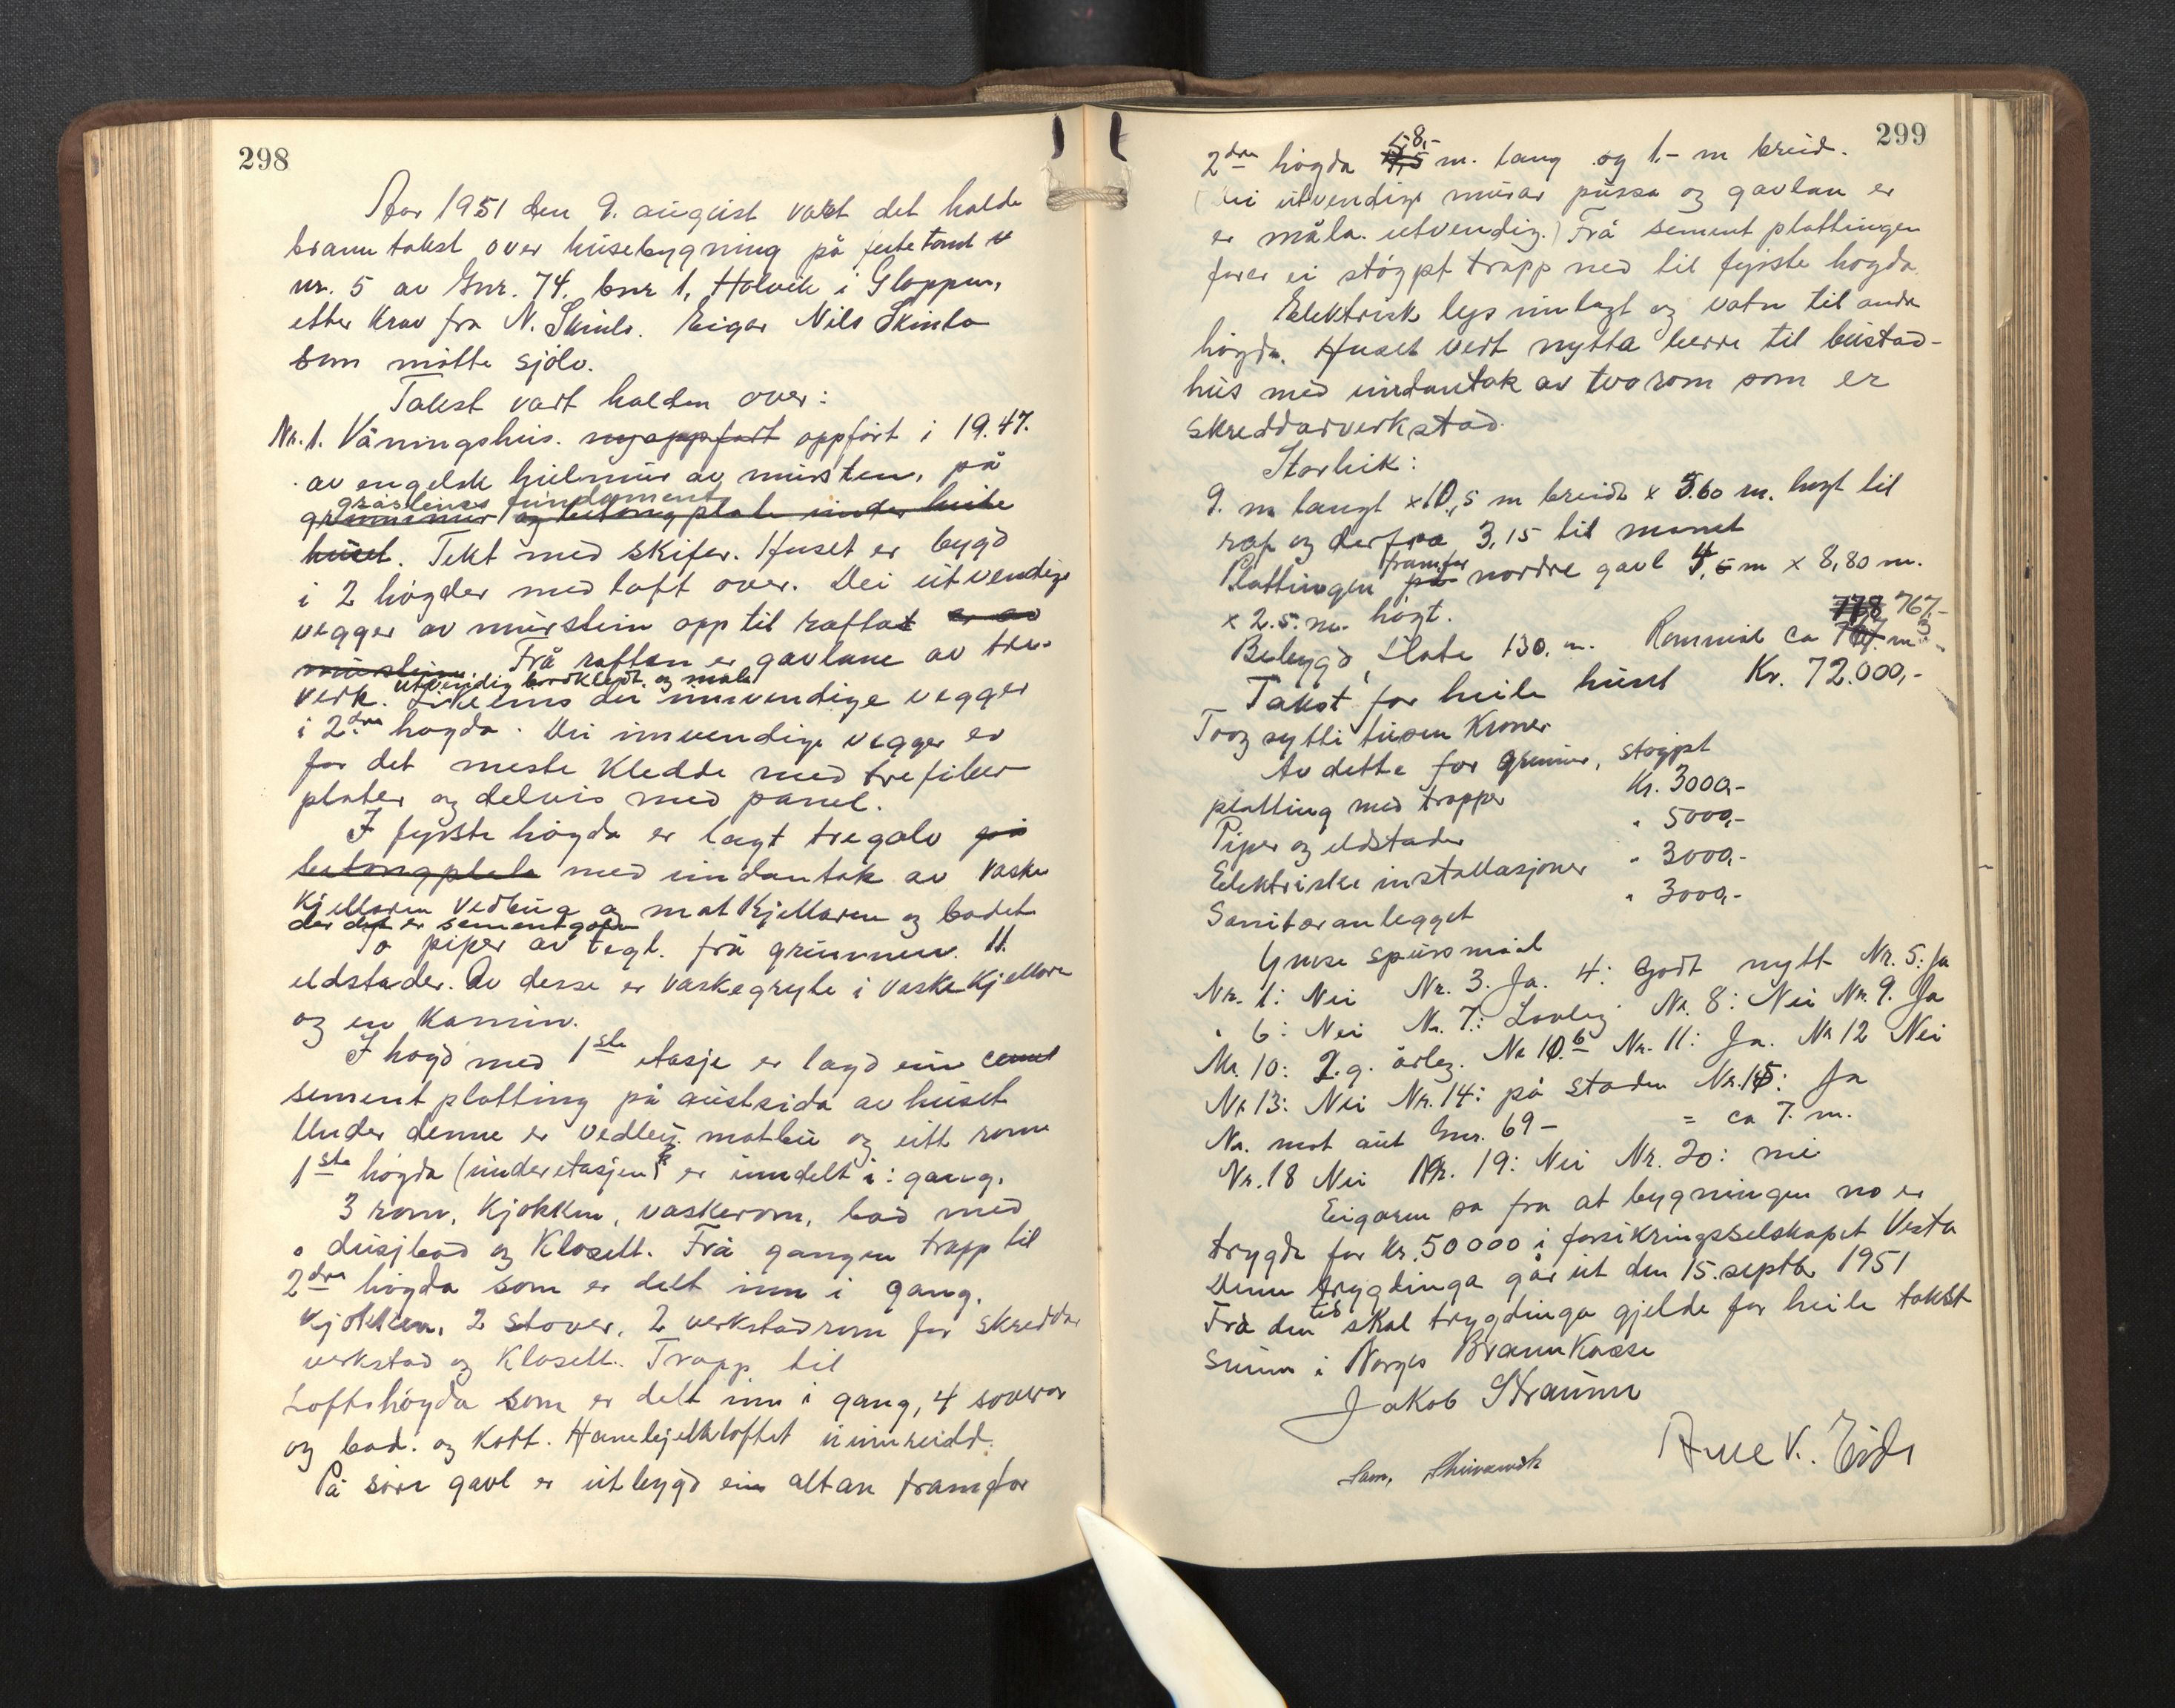 298
Aar 1951 den 9. august vart det halde
branntakst over husebygning på festetomt
nr. 5 av Gnr. 74, bnr 1, Holvik i Gloppen,
etter Krav fra N. Skinlo. Eigar Nils Skinlo
som møtte sjølv.
Takst vart halden over:
Nr. 1. Våningshus. nyoppført oppført i 1947.
av engelsk hulmur av mursten, på
gråsteins fundament
grunnmur og betongplate under heile
huset. Tekt med skifer. Huset er bygd
i 2 høgder med loft over. Dei utvendige
vegger av murstein opp til raftat er av
murstein. Frå raften er gavlane av tre-
utvendig bordkledt og mala
verk. Likeeins dei innvendige vegger
i 2dre høgda. Dei innvendige vegger er
for det meste Kledde med trefiber
plater og delvis med panel.
I fyrste høgda er lagt tregolv på
betongplate med undantak av vaske
Kjellaren vedbua og mat Kjellaren og badet
der det er sementgolv
To piper av tegl. frå grunnen. 11.
eldstader. Av desse er vaskegryte i vaskekjellare
og en Kamin.
I høgd med 1ste etasje er lagd ein cemet
sement platting på austsida av huset
Under denne er vedbu, matbu og eitt rom
1ste høgda (underetasjen) er inndelt i: gang,
3 rom, Kjøkken, vaskerom, bad med
dusjbad og Klosett. Frå gangen trapp til
2dre høgda som er delt inn i gang,
Kjøkken, 2 stover, 2 verkstadrom for skreddar
verkstad og Klosett. Trapp til
Loftshøgda som er delt inn i gang, 4 soverom
og bad. og Kott. Hanebjelkloftet uinnreidd.
På søre gavl er utbygd ein altan framfor
299
5,8,-
2dre høgda 4,5 m. lang og 1,- m breid.
(Dei utvendige murar pussa og gavlan er
er måla utvendig.) Frå sement plattingen
fører ei støypt trapp ned til fyrste høgda
Elektrisk lys innlagt og vatn til andre
høgda. Huset vert nytta berre til bustad-
hus med undantak av tvo rom som er
skreddarverkstad.
Storleik:
9. m langt x 10,5 m breidt x 5.60 m. høgt til
raf og derfra 3,15 til mønet
framfor
Plattingen på nordre gavl 4,5 m x 8,80 m.
x 2.5. m. høgt.
778 767,-
Bebygd flate 130. m. Rommål ca 767 m3
Takst for heile huset Kr. 72.000,-
Toog sytti tusen Kroner
Av dette for grunnur, støypt
platting med trapper Kr. 3000,-
Piper og eldstader " 5000,-
Elektriske installasjoner " 3000,-
Sanitæranlegget " 3000,-
Ymse spursmål
Nr. 1: Nei Nr. 3. Ja. 4: Godt nytt Nr. 5: Ja
" 6: Nei Nr. 7: Lovleg Nr. 8: Nei Nr. 9. Ja
Nr. 10: 2. g. årleg. Nr 10.b Nr. 11: Ja. Nr 12 Nei
Nr 13: Nei Nr. 14: på staden Nr. 15: Ja
Nr. mot aust Gnr. 69 - = ca 7. m.
Nr. 18 Nei Nr. 19: Nei Nr. 20: nei
Eigaren sa fra at bygningen no er
trygda for Kr. 50000 i forsikringsselskapet Vesta
Denne trygdinga går ut den 15. septbr 1951
tid
Frå den skal trygdinga gjelde for heile takst
summ i Norges BrannKasse
Jakob Straume
Arne V. Eide
Sam.